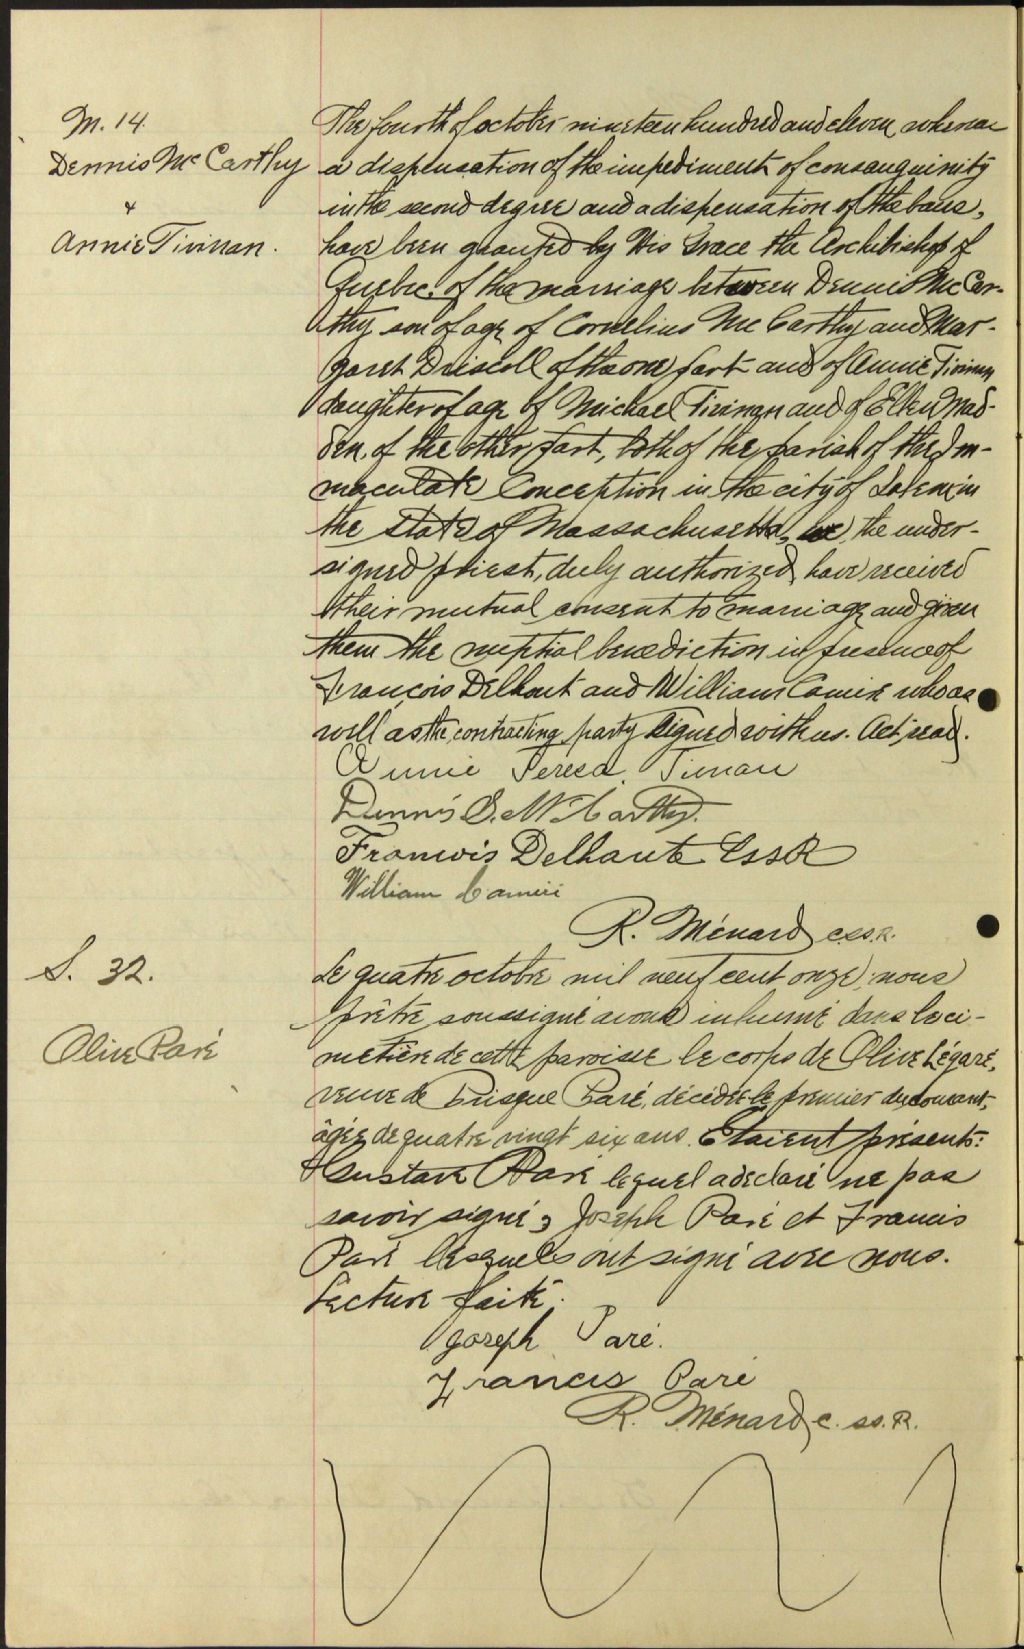 M. 14.
Dennis McCarthy
&
Annie Tivinan.
The fourth of october nineteen hundred and eleven, whereas
a dispensation of the impediment of consanguinity
in the second degree and a dispensation of the bans,
have been granted by His Grace the Archbishop of
Quebec, of the marriage between Dennis McCar-
thy son of age of Cornelius McCarthy and Mar-
garet Driscoll of the one part and of Annie Tivinan
daughter of age of Michael Tivinan and of Ellen Mad-
den, of the other part, both of the parish of the Im-
maculate Conception in the city of Salem in
the state of Massachusetts, we, the under-
signed priest, duly authorized, have received
their mutual consent to marriage and given
them the nuptial benediction in presence of
François Delhaut and William Camiré who as
well as the contracting party signed with us. Act read.
Annie Teresa Tivnan
Dennis S. McCarthy.
Francois Delhaute CssR
William Camiré
R. Ménard, c.ss.R.
S. 32.
Olive Paré
Le quatre octobre mil neuf cent onze, nous
prêtre soussigné avons inhumé dans le ci-
metière de cette paroisse le corps de Olive Légaré,
veuve de Prisque Paré, décédée le premier du courant,
âgée de quatre vingt six ans. Etaient présents:
Gustave Paré lequel a déclaré ne pas
savoir signé, Joseph Paré et Francis
Paré lesquels ont signé avec nous.
Lecture faite.
Joseph Paré.
Francis Paré
R. Ménard, c.ss.R.